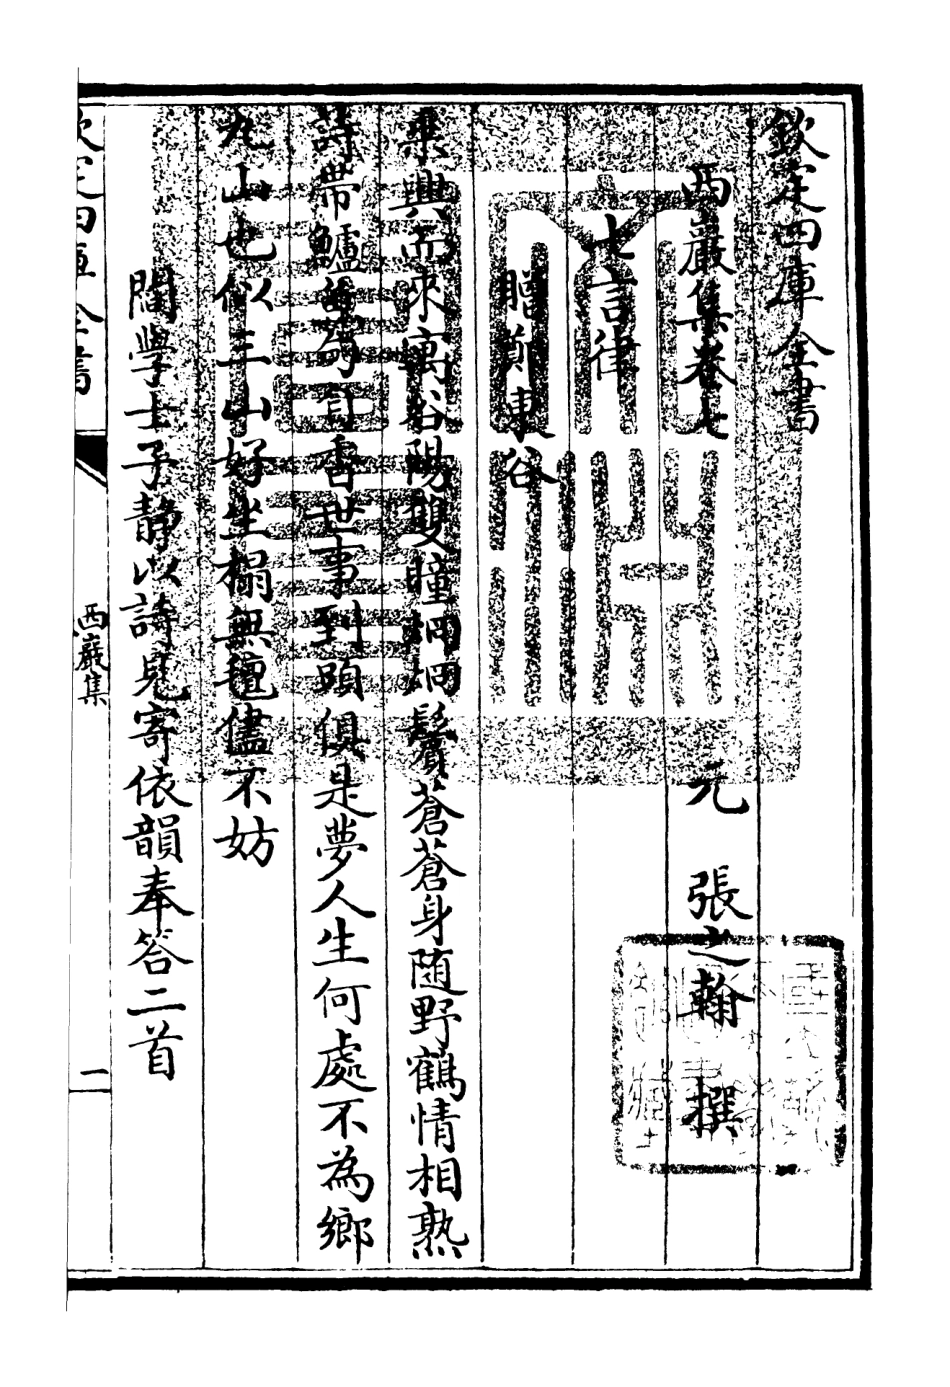 欽定四庫全書
西巖集卷七 元 張之翰 撰
七言律
贈鄭東谷
乘興而來寓谷陽雙瞳炯炯鬢蒼蒼身随野鶴情相熟
詩帶鱸魚句自香世事到頭俱是夢人生何處不為鄉
九山也似三山好坐榻無氊儘不妨
閻學士子静以詩見寄依韻奉答二首
欽定四庫全書 西巖集 一